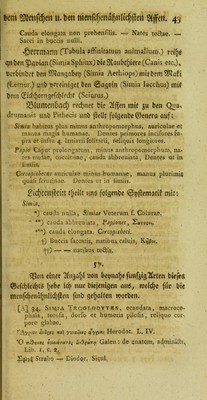 dem Menschen u. den menschenähnlichsten Affen. 43
Cauda elongata non prehensilis. — Nates tectae. —
Sacci in buccis nulli.
Herrmann (Tabula affinitatum animalium.) reihe
an den Papian (Simia Sphinx) die Raubthiere (Canis etc.),
verbindet den Mangabey (Simia Aethiops) mit dem Maki
(Lemur.) und vereiniget den Sagoin (Simia Iacchus) mit
dem Eichhorngeschlecht (Sciurus.)
Blumenbach rechnet die Affen mit zu den Qua-
drumanis und Pithecis und stellt folgende Genera auf:
Simia habitus plus minus anthropomorphus, auriculae et
manus magis humanae. Dentes primores incisores su-
pra et infra 4. laniarii solitarii, reliquis longiores.
Papio Caput prolongatum, minus anthropomorphum, na-
tes nudae, coccineae, cauda abbreviata, Dentes ut in
Simiis.
Cercopithecus auriculae minus humanae, manus plurimis
quam Dentes ut in simiis.
Lichtenstein theilt uns folgende Systematik mit:
Simia,
*) cauda nulla, Simiae Veterum f. Colorar.
**) cauda abbreviata, Papiones,
***) cauda elongata. Cercopitheci.
†) Buccis saccatis, natibus calvis,
††) — — natibus tectis.
57.
Von einer Anzahl von beynahe funfzig Arten dieses
Geschlechts hebe ich nur diejenigen aus, welche für die
menschenähnlichsten sind gehalten worden.
[A] 34. SIMIA TROGLODYTES, ecaudata, macroce-
phala, torosa, dorso et humeris pilosis, reliquo cor-
pore glabro.
Herodot. L. IV.
Galen: de anatom. administr.
Lib. 1. c. 2.
Strabo — Diodor. Sicul.